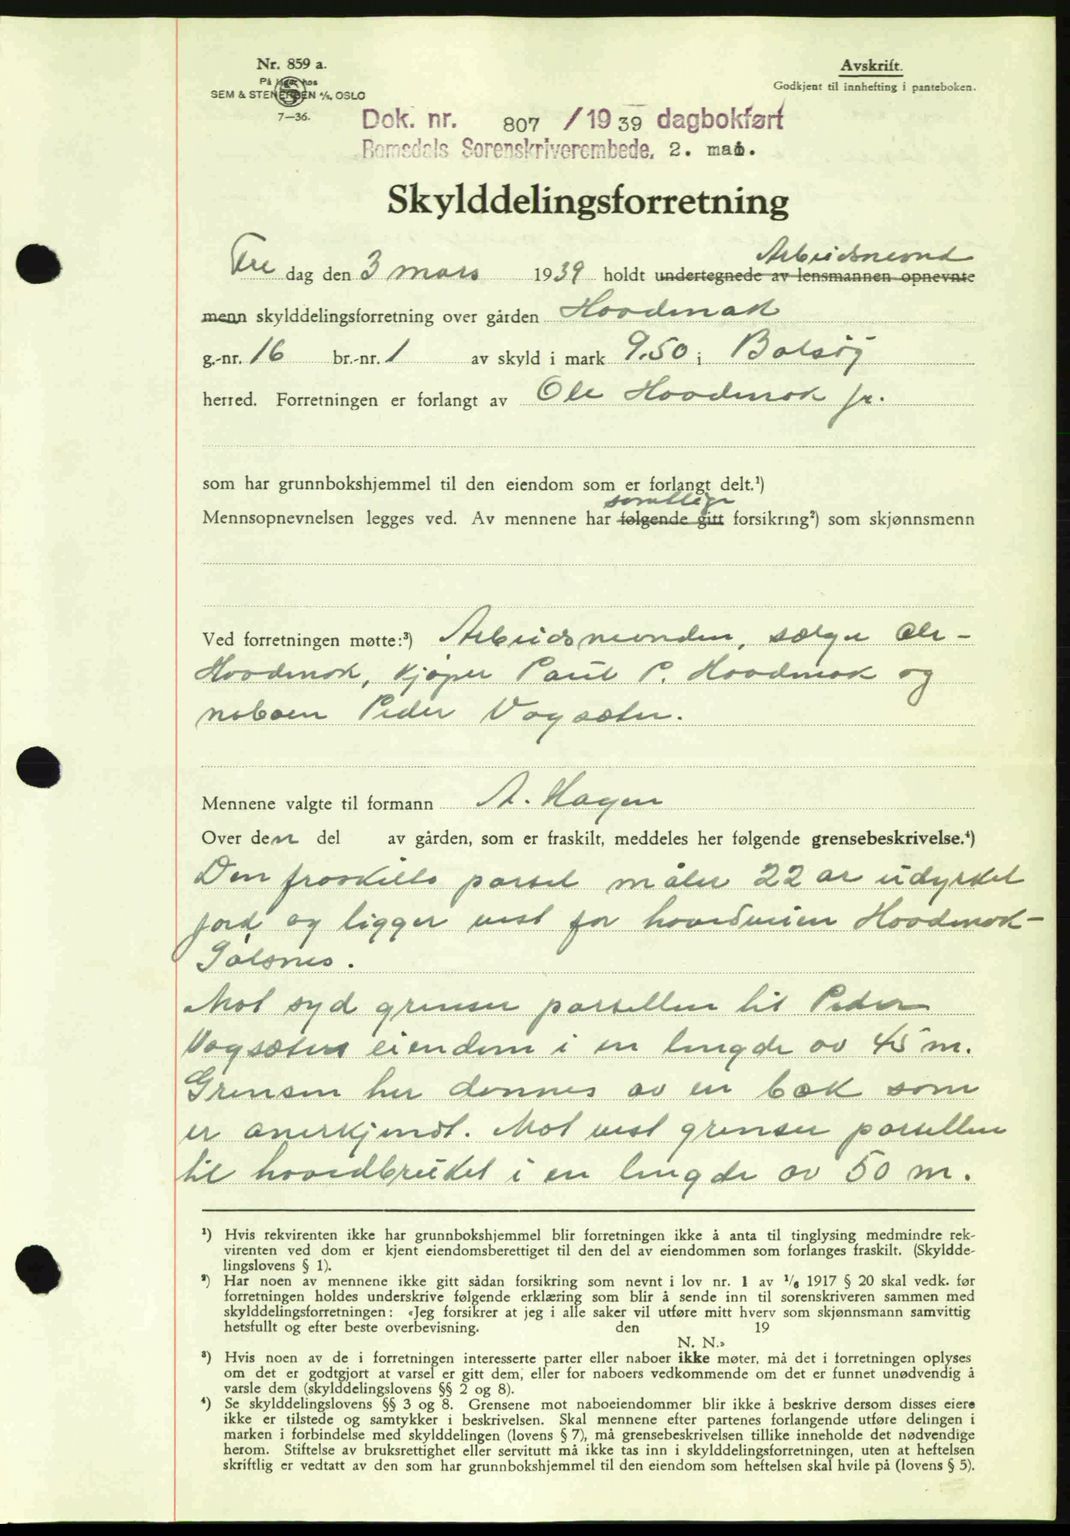 Nr. 859 a.
På lager hos
SEM & STENERSEN A/S, OSLO
7—36.
Avskrift.
Godkjent til innhefting i panteboken.
Dok. nr. 807 /1939 dagbokført
Romsdals Sorenskriverembede, 2. mai.
Skylddelingsforretning
Arbeidsnevnd
Fre dag den 3 mars 1939 holdt undertegnede av lensmannen opnevnte
menn skylddelingsforretning over gården Hoodmak
g.-nr. 16 br.-nr. 1 av skyld i mark 9.50 i Bolsøy
herred. Forretningen er forlangt av Ole Hoodmok jr.
som har grunnbokshjemmel til den eiendom som er forlangt delt.¹)
samtlige
Mennsopnevnelsen legges ved. Av mennene har følgende gitt forsikring²) som skjønnsmenn
Ved forretningen møtte:³) Arbeidsnevnden, sælger Ole-
Hoodmok, kjøper Paul P. Hoodmok og
naboen Peder Vagsæter.
Mennene valgte til formann A. Hagen
Over den del av gården, som er fraskilt, meddeles her følgende grensebeskrivelse.⁴)
Den fraskilte parsel måler 22 ar udyrket
jord og ligger vest for hovedveien Hoodmok-
Gålsnes.
Mot syd grenser parsellen til Peder
Vagsæters eiendom i en lengde av 45 m.
Grensen her dannes av en bæk som
er anerkjendt. Mot vest grenser parsellen
til hovedbruket i en lengde av 50 m.
¹) Hvis rekvirenten ikke har grunnbokshjemmel blir forretningen ikke å anta til tinglysing medmindre rek-
virenten ved dom er kjent eiendomsberettiget til den del av eiendommen som forlanges fraskilt. (Skyldde-
lingslovens § 1).
²) Har noen av mennene ikke gitt sådan forsikring som nevnt i lov nr. 1 av ¹/₆ 1917 § 20 skal vedk. før
forretningen holdes underskrive følgende erklæring som blir å sende inn til sorenskriveren sammen med
skylddelingsforretningen: «Jeg forsikrer at jeg i alle saker vil utføre mitt hverv som skjønnsmann samvittig
hetsfullt og efter beste overbevisning. den 19
N. N.»
³) Hvis noen av de i forretningen interesserte parter eller naboer ikke møter, må det i forretningen oplyses
om det er godtgjort at varsel er gitt dem, eller for naboers vedkommende om det er funnet unødvendig å
varsle dem (skylddelingslovens §§ 2 og 8).
⁴) Se skylddelingslovens §§ 3 og 8. Grensene mot naboeiendommer blir ikke å beskrive dersom disses eiere
ikke er tilstede og samtykker i beskrivelsen. Skal mennene efter partenes forlangende utføre delingen i
marken i forbindelse med skylddelingen (lovens § 7), må grensebeskrivelsen tillike inneholde det nødvendige
herom. Stiftelse av bruksrettighet eller servitutt må ikke tas inn i skylddelingsforretningen, uten at heftelsen
skriftlig er vedtatt av den som har grunnbokshjemmel til den eiendom som heftelsen skal hvile på (lovens § 5).